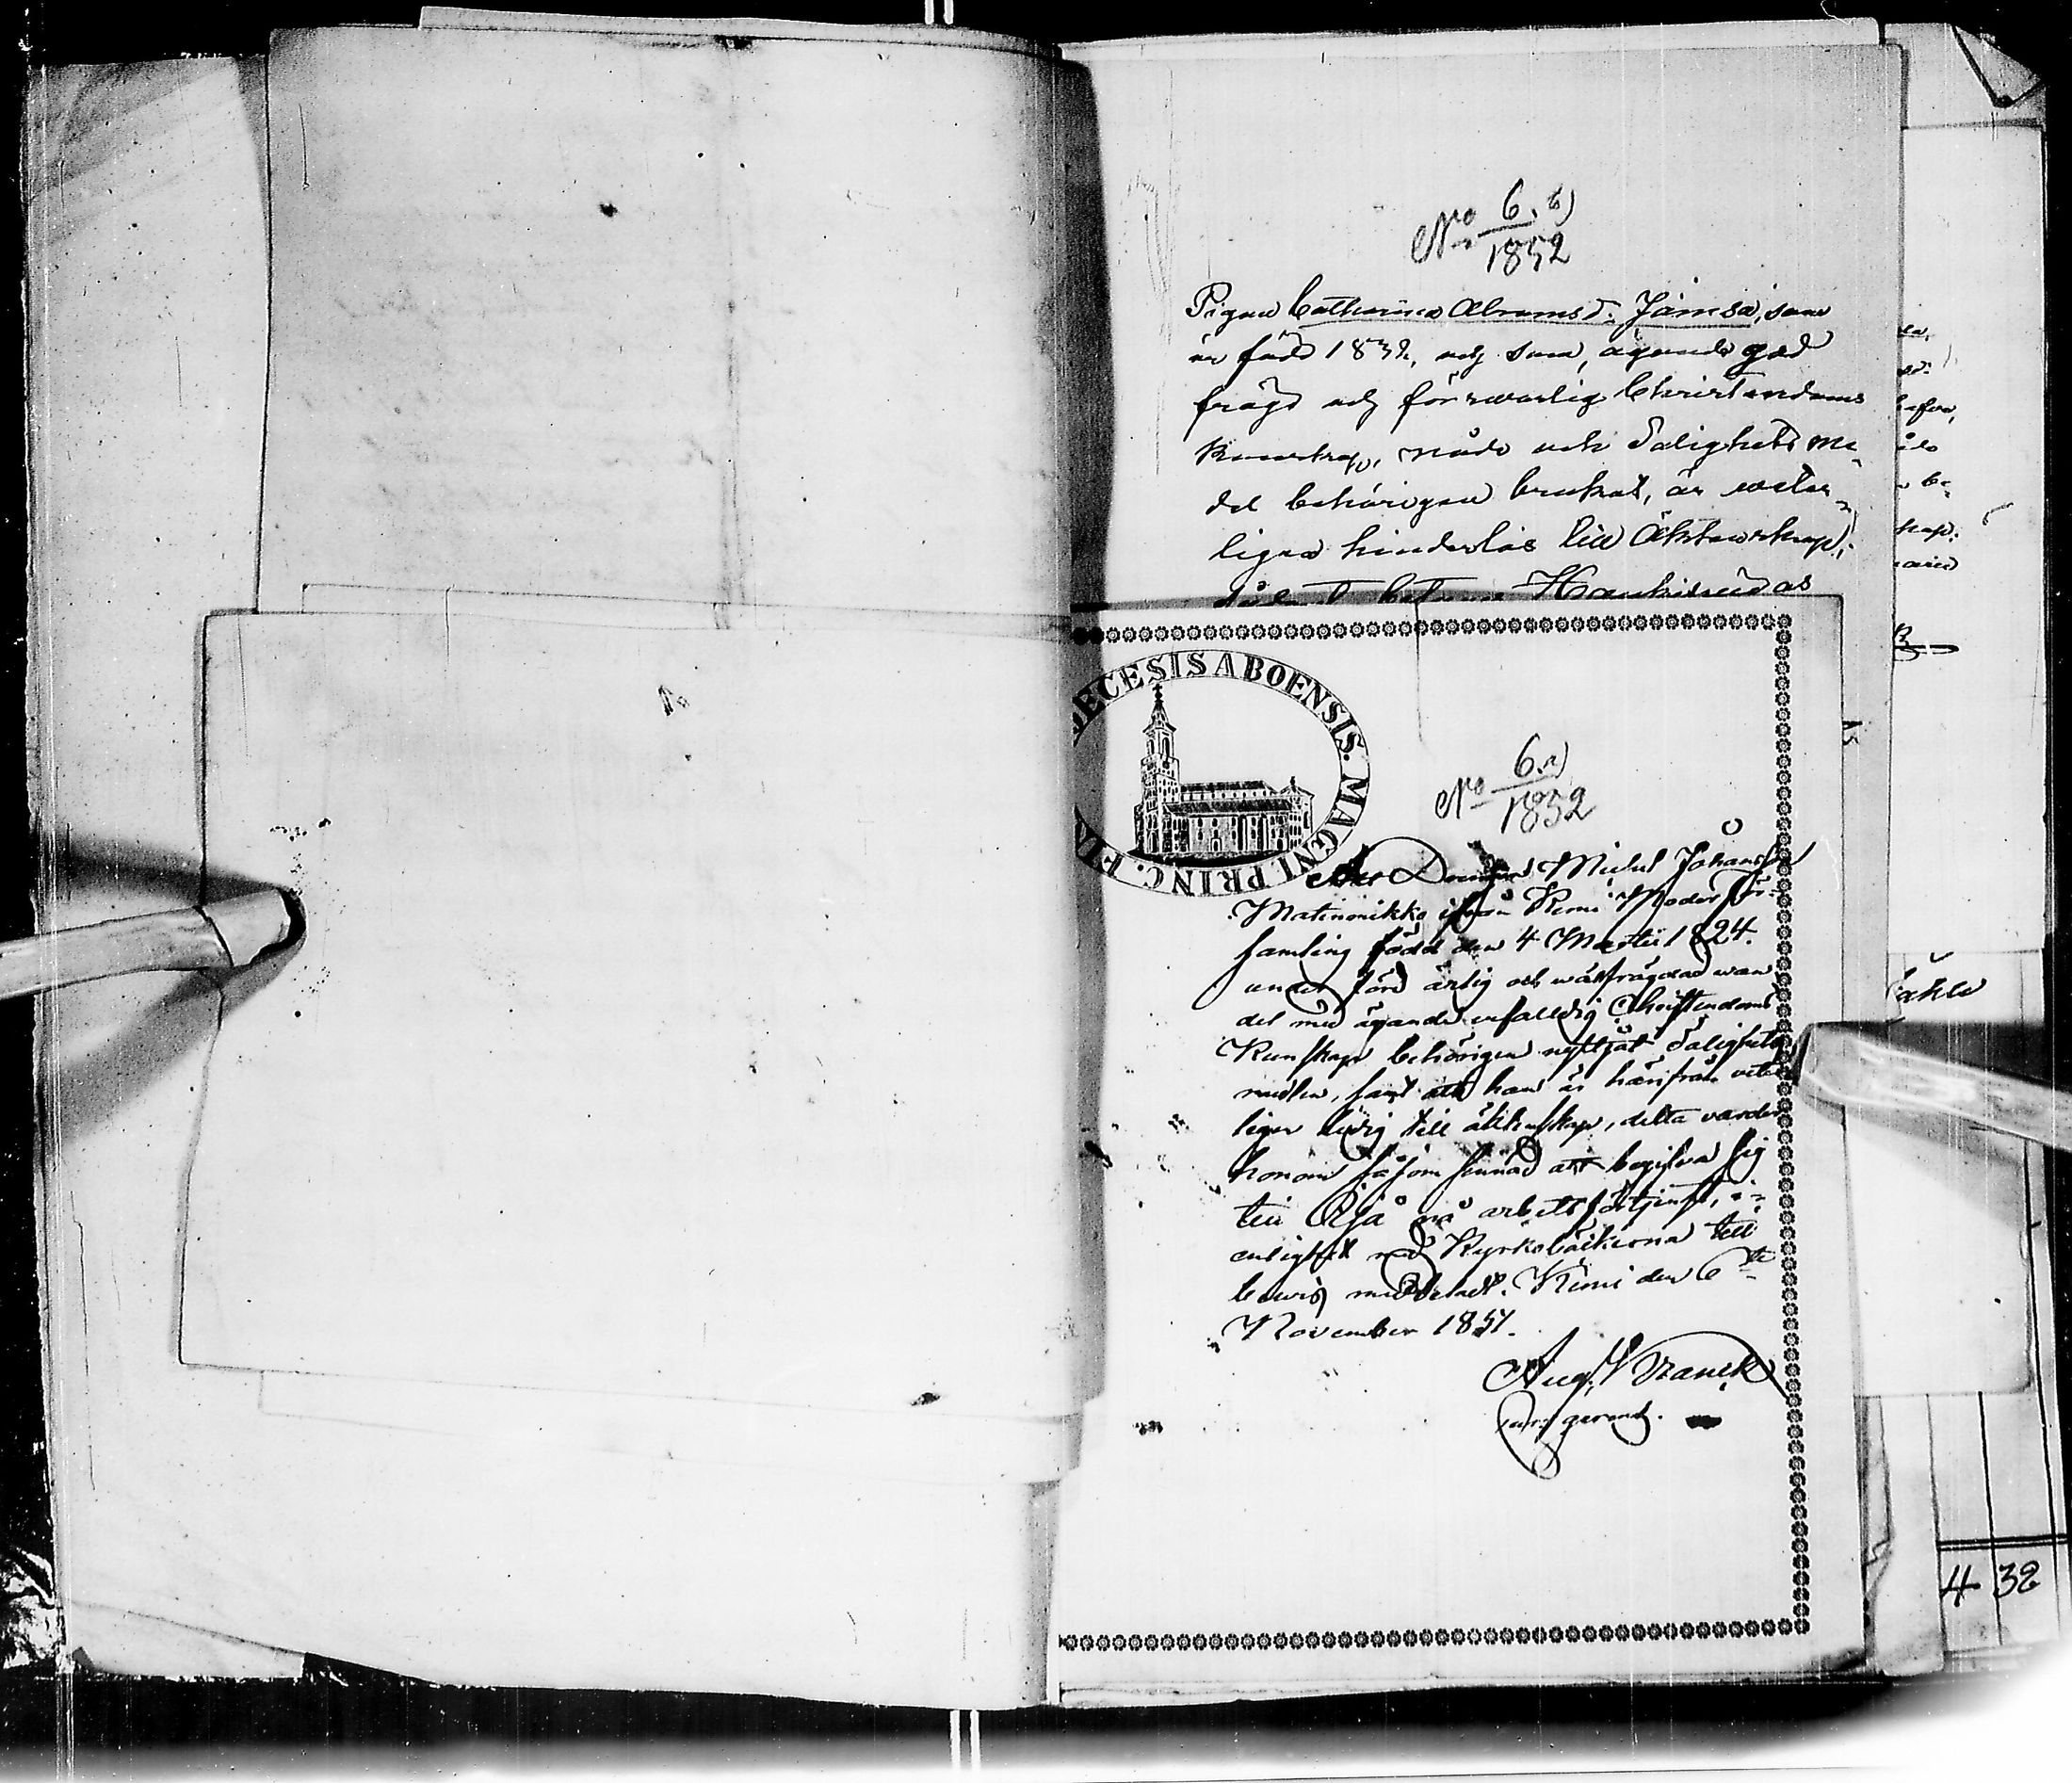 No 6. b)
1852
Pigan Catharina Abramsd. Jämsä, som
är född 1832, och som, ägande god
frägd och förswarlig Christendoms
Kunskap, nåde och Salighets me-
del behörigen brukat, är weter-
ligen hinderlös till Äktenskap;
DECESIS ABOENSIS. MAGNI. PRINC. FIN
No 6. a)
1852
Att Drängen Michel Johansson
Matinmikko ifrån Kemi Moderför-
samling född den 4 Martii 1824.
under förd ärlig och wälfrägdad wan-
del med ägande enfalldig Christendoms
Kunskap behörigen nyttjat Salighets
medlen, samt att han är härifrån veter
ligen ledig till äktenskap, detta varder
honom såsom sinnad att begifva sig
till på arbetsförtjenst, i
enlighet med Kyrkoböckerna till
bewis meddeladt. Kemi den 6te
November 1851.
Aug. Franck
past. gerens.
afva,
be-
kap.
4 32